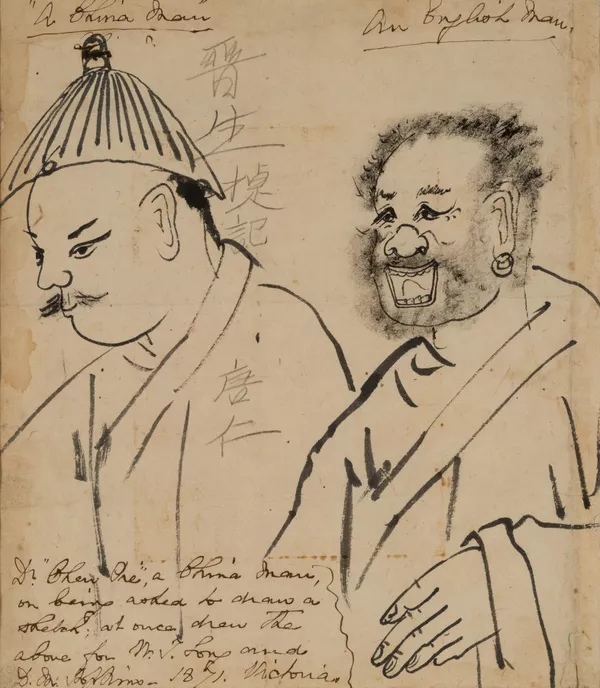 "A China Man"
An English Man.
晋
生
桢
記
唐
仁
Dr "Chen Pie", a China Man,
on being asked to draw a
sketch, at once drew the
above for W. T. Long and
D. M. 1871. Victoria